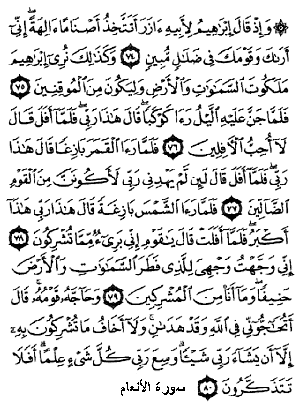 ۞ وَإِذْ قَالَ إِبْرَٰهِيمُ لِأَبِيهِ ءَازَرَ أَتَتَّخِذُ أَصْنَامًا ءَالِهَةً ۖ إِنِّىٓ
أَرَىٰكَ وَقَوْمَكَ فِى ضَلَٰلٍ مُّبِينٍ ٧٤ وَكَذَٰلِكَ نُرِىٓ إِبْرَٰهِيمَ
مَلَكُوتَ ٱلسَّمَٰوَٰتِ وَٱلْأَرْضِ وَلِيَكُونَ مِنَ ٱلْمُوقِنِينَ ٧٥
فَلَمَّا جَنَّ عَلَيْهِ ٱلَّيْلُ رَءَا كَوْكَبًا ۖ قَالَ هَٰذَا رَبِّى ۖ فَلَمَّآ أَفَلَ قَالَ
لَآ أُحِبُّ ٱلْءَافِلِينَ ٧٦ فَلَمَّا رَءَا ٱلْقَمَرَ بَازِغًا قَالَ هَٰذَا
رَبِّى ۖ فَلَمَّآ أَفَلَ قَالَ لَئِن لَّمْ يَهْدِنِى رَبِّى لَأَكُونَنَّ مِنَ ٱلْقَوْمِ
ٱلضَّآلِّينَ ٧٧ فَلَمَّا رَءَا ٱلشَّمْسَ بَازِغَةً قَالَ هَٰذَا رَبِّى هَٰذَآ
أَكْبَرُ ۖ فَلَمَّآ أَفَلَتْ قَالَ يَٰقَوْمِ إِنِّى بَرِىٓءٌ مِّمَّا تُشْرِكُونَ ٧٨
إِنِّى وَجَّهْتُ وَجْهِىَ لِلَّذِى فَطَرَ ٱلسَّمَٰوَٰتِ وَٱلْأَرْضَ
حَنِيفًا ۖ وَمَآ أَنَا۠ مِنَ ٱلْمُشْرِكِينَ ٧٩ وَحَآجَّهُۥ قَوْمُهُۥ ۚ قَالَ
أَتُحَٰٓجُّوٓنِّى فِى ٱللَّهِ وَقَدْ هَدَىٰنِ ۚ وَلَآ أَخَافُ مَا تُشْرِكُونَ بِهِۦٓ
إِلَّآ أَن يَشَآءَ رَبِّى شَيْـًٔا ۗ وَسِعَ رَبِّى كُلَّ شَىْءٍ عِلْمًا ۗ أَفَلَا
تَتَذَكَّرُونَ ٨٠ سورة الأنعام